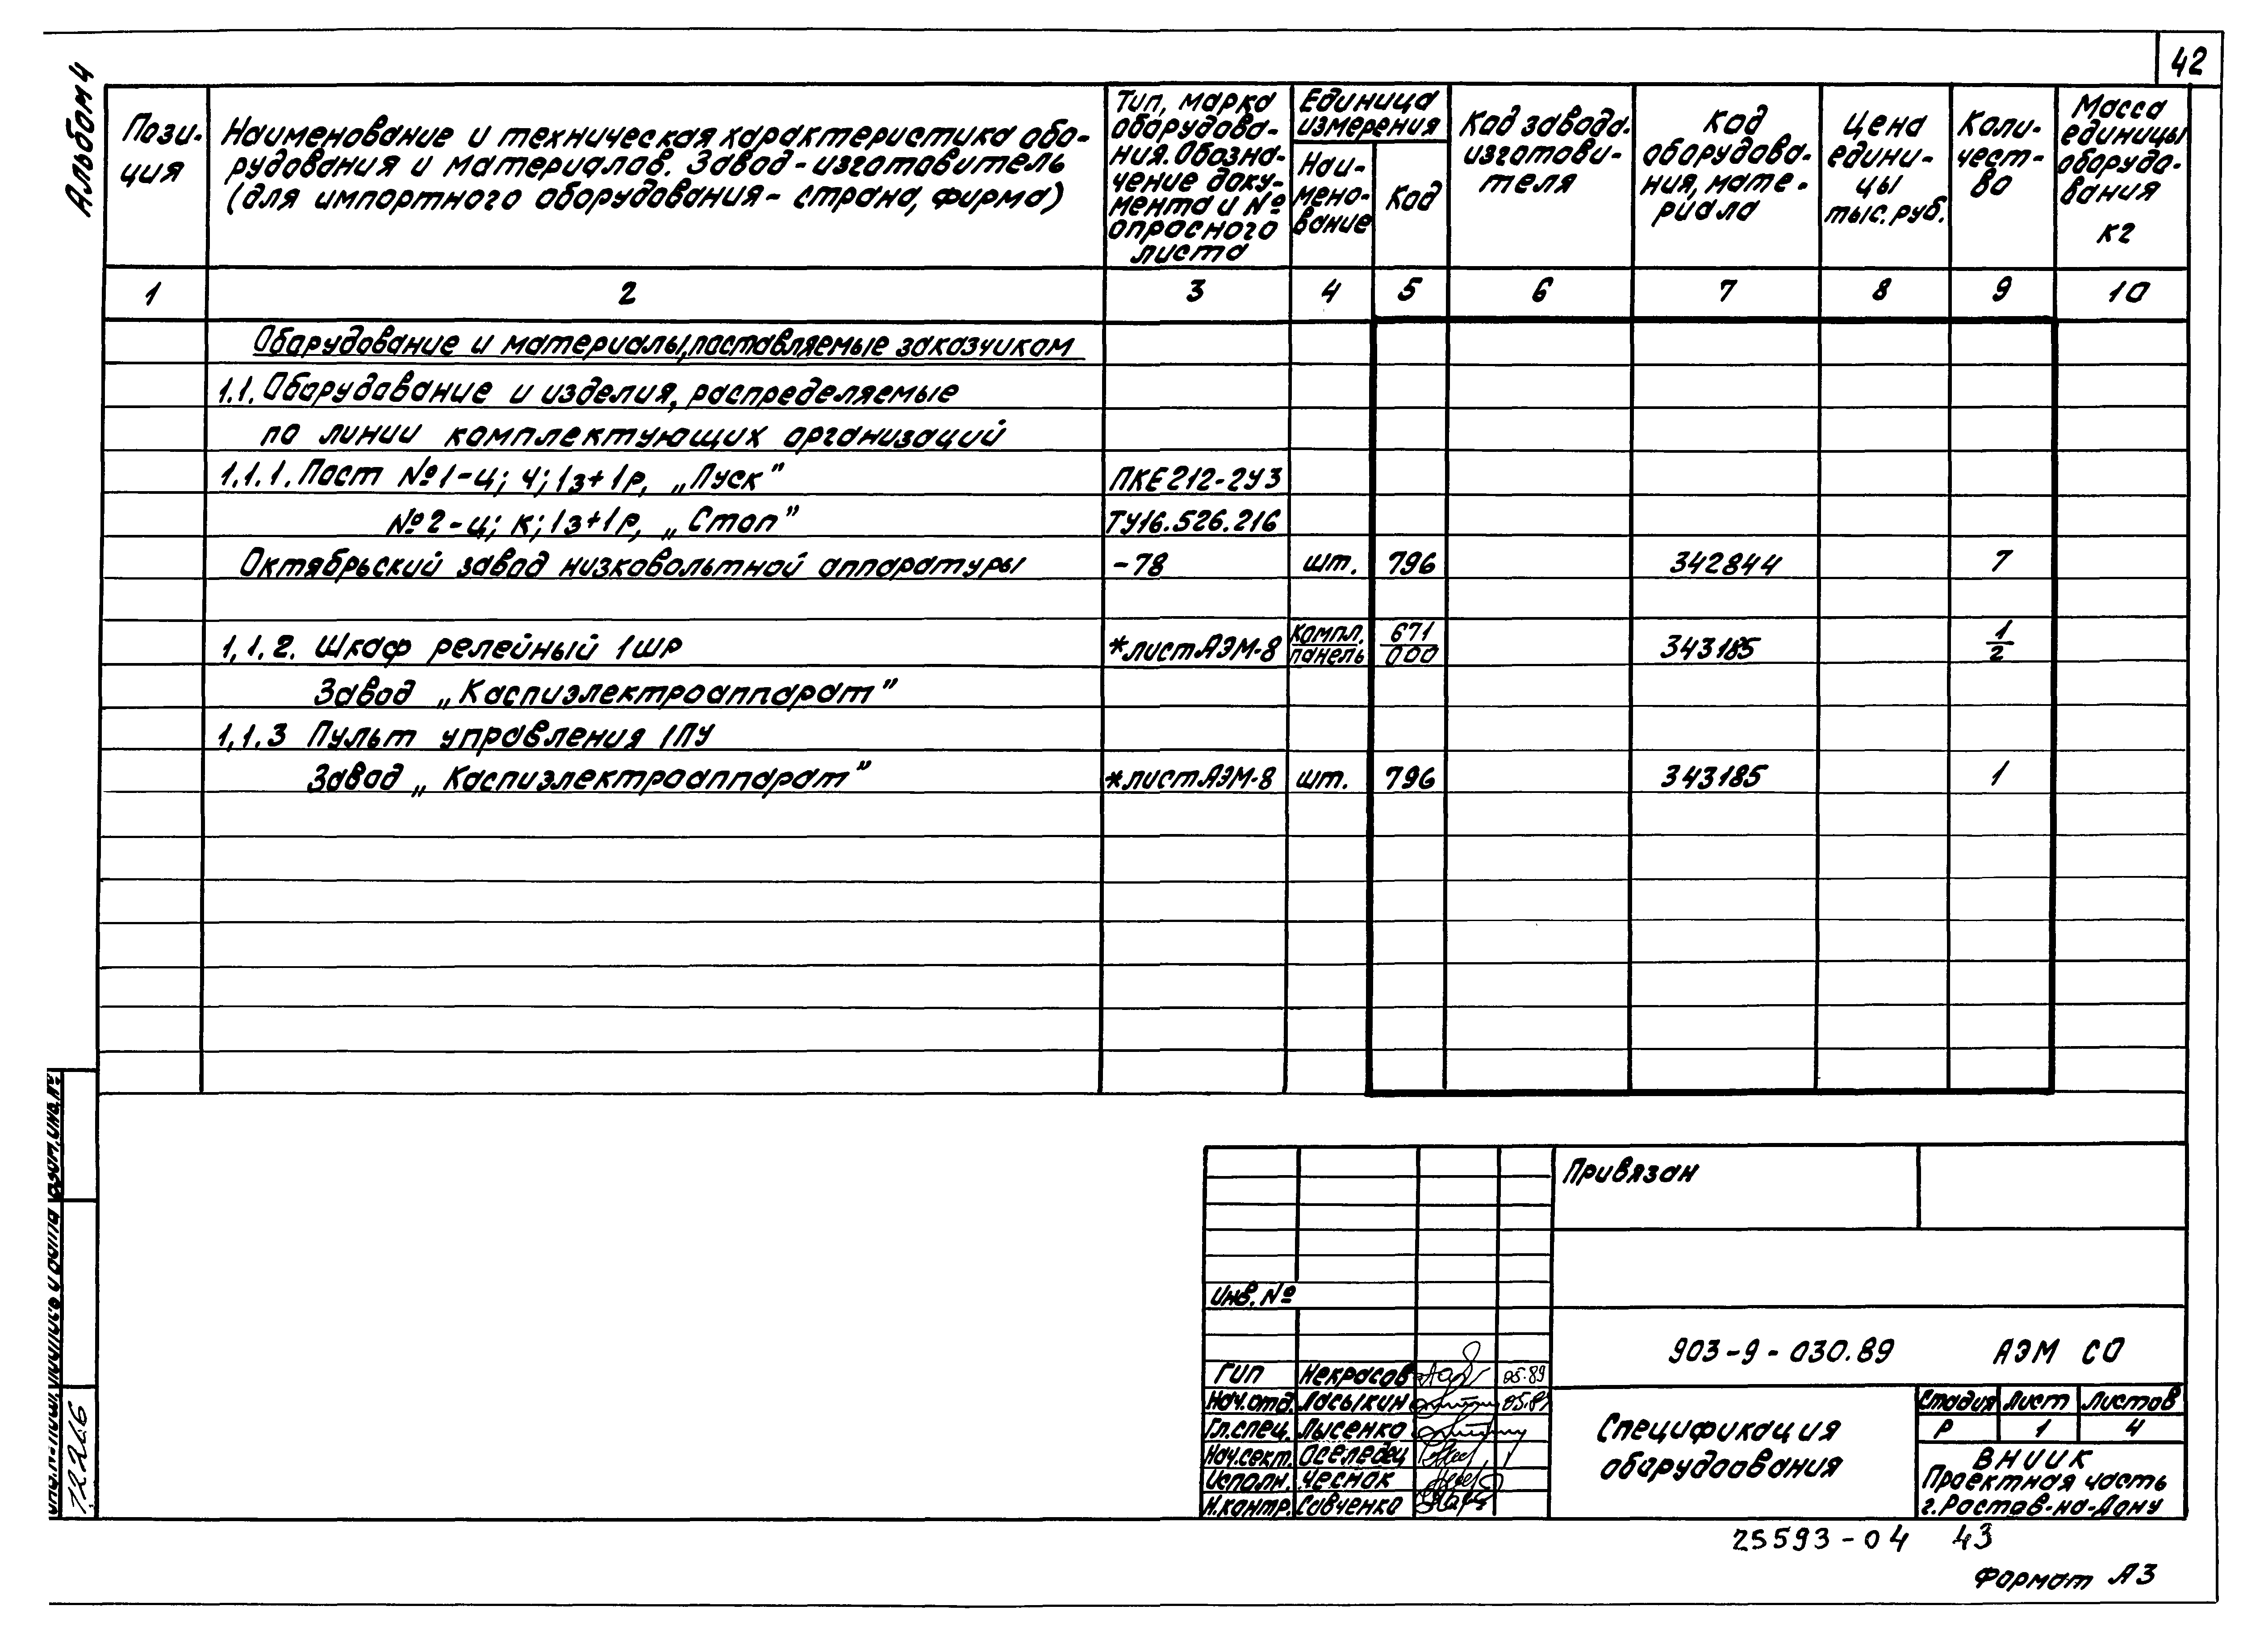 42
Альбом 4
Пози-
ция
Наименование и техническая характеристика обо-
рудования и материалов. Завод-изготовитель
(для импортного оборудования - страна, фирма)
Тип, марка
оборудова-
ния. Обозна-
чение доку-
мента и №
опросного
листа
Единица
измерения
Наи-
мено-
вание
Код
Код завода-
изготови-
теля
Код
оборудова-
ния, мате-
риала
Цена
едини-
цы
тыс. руб.
Коли-
чест-
во
Масса
единицы
оборудо-
вания
кг
1 2 3 4 5 6 7 8 9 10
Оборудование и материалы, поставляемые заказчиком
1.1. Оборудование и изделия, распределяемые
по линии комплектующих организаций
1.1.1. Пост №1-ц; ч; 1з+1р, „Пуск” ПКЕ212-2У3
№2-ц; к; 1з+1р, „Стоп” ТУ16.526.216
Октябрьский завод низковольтной аппаратуры -78 шт. 796 342844 7
1.1.2. Шкаф релейный 1ШР *лист АЭМ-8 компл./панель 671/000 343185 1/2
Завод „Каспиэлектроаппарат”
1.1.3 Пульт управления 1ПУ
Завод „Каспиэлектроаппарат” *лист АЭМ-8 шт. 796 343185 1
Взам. инв. №
Подпись и дата
12266
Привязан
Инв. №
903-9-030.89 АЭМ СО
ГИП Некрасов 05.89
Нач. отд. Ласыкин 05.89
Гл. спец. Лысенко
Нач. сект. Оселедец
Исполн. Чеснок
Н. контр. Савченко
Спецификация
оборудоования
Стадия Лист Листов
Р 1 4
ВНИИК
Проектная часть
г. Ростов-на-Дону
25593-04 43
Формат А3